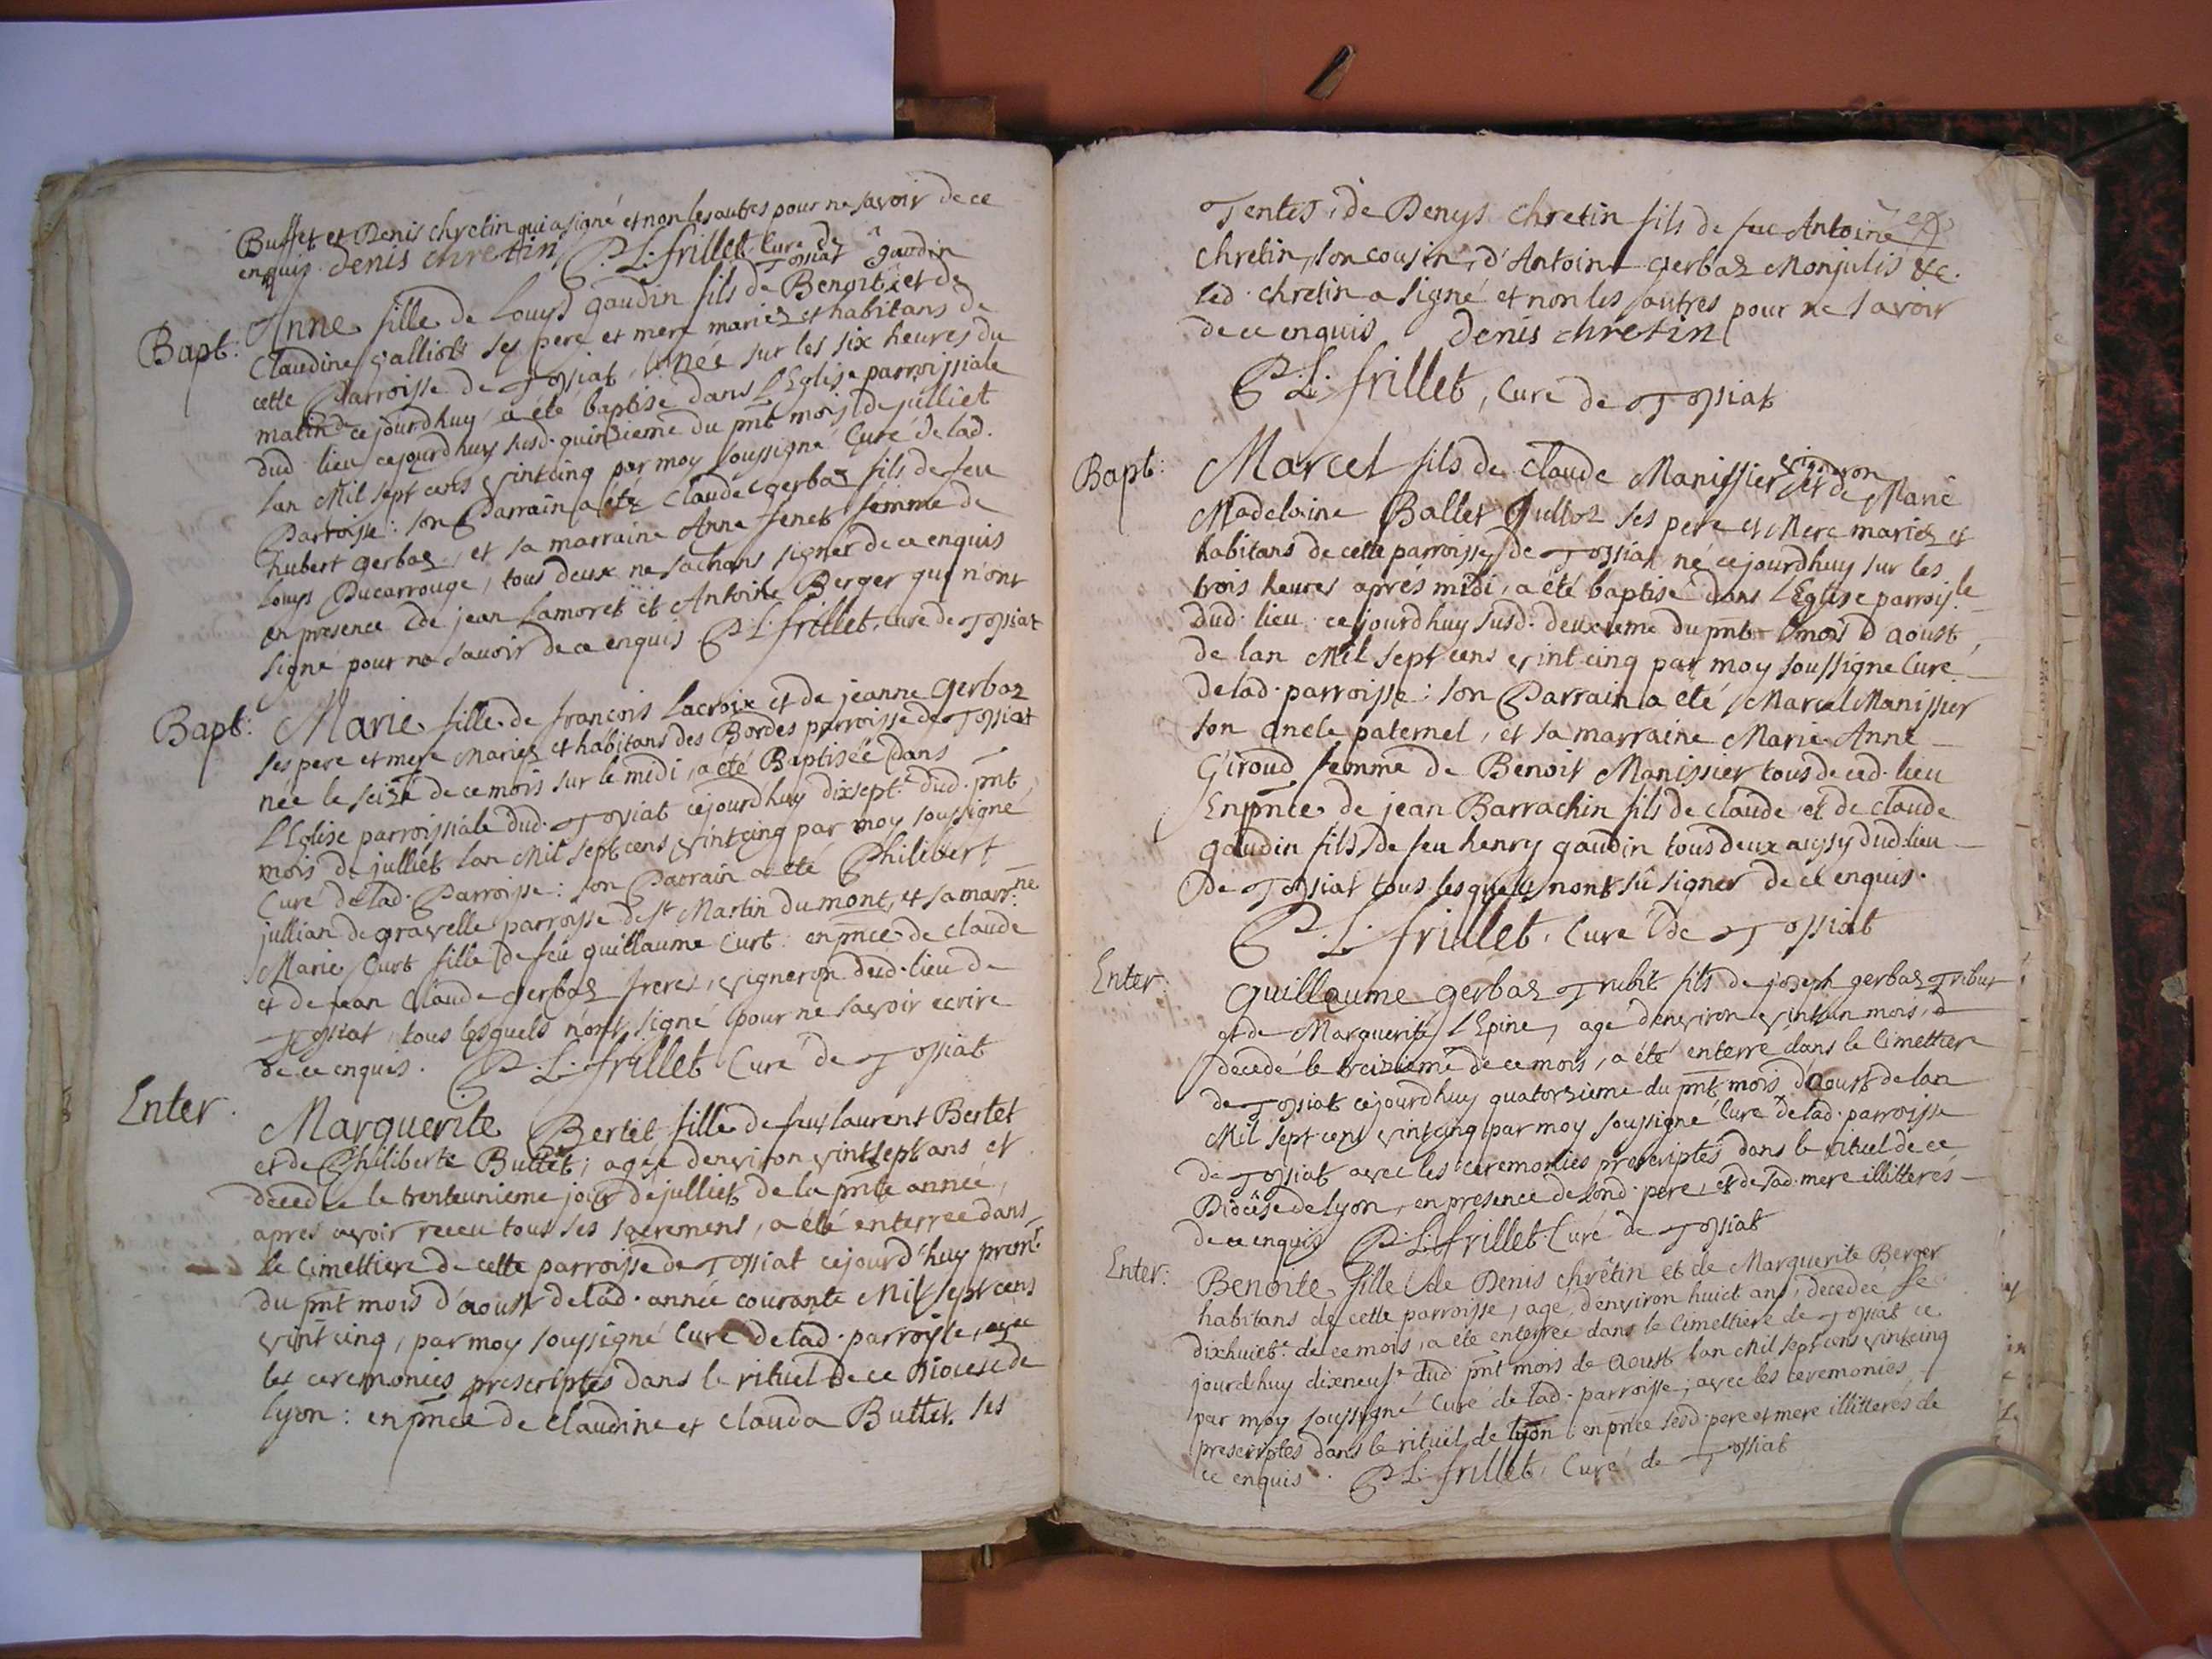 Buffet et Denis chretin qui a signé et non les autres pour ne savoir de ce
enquis. denis chretin P. L. frillet Curé de Tossiat
Bapt: Anne fille de Louys gaudin fils de Benoit gaudin et de
Claudine galliott ses pere et mere mariez et habitans de
cette Parroisse de Tossiat, née sur les six heures du
matin de cejourdhuy a été baptisé dans L'Eglise parroissiale
dud. lieu cejourdhuy susd. quinzieme du pnt mois de julliet
lan Mil sept cens vintcinq par moy soussigné Curé de lad.
Parroisse: son Parrain a été Claude gerbaz fils de feu
hubert gerbaz, et sa marraine Anne fenet femme de
Louys Ducarrouge, tous deux ne sachans signer de ce enquis
en presence de jean Lamoret et Antoine Berger qui n'ont
signé pour ne savoir de ce enquis P. L. frillet, Curé de Tossiat
Bapt: Marie fille de françois Lacroix et de jeanne gerbaz
ses pere et mere Mariez et habitans des Bordes parroisse de Tossiat
née le seize de ce mois sur le midi, a été Baptisée dans
l'Eglise parroissiale dud. Tossiat cejourdhuy dixsept.e dud. pnt
mois de julliet lan Mil sept cens vintcinq par moy soussigné
Curé de lad. Parroisse: son Parrain a été Philibert
jullian de gravelle parroisse de St Martin du mont, et sa marr.ne
Marie Curt fille de feu guillaume Curt: en pnce de claude
et de jean Claude gerbaz freres, vigneron dud. lieu de
Tossiat, tous lesquels n'ont signé pour ne savoir ecrire
de ce enquis. P. L. frillet Curé de Tossiat
Enter. Marguerite Bertet fille de feu laurent Bertet
et de Philiberte Buttet, agée denviron vintsept ans et
decedée le trenteunieme jour de julliet de la pnte année,
apres avoir receu tous ses sacremens, a été enterrée dans
le Cimettiere de cette parroisse de Tossiat cejourd'huy prem.r
du pnt mois d'aoust de lad. année courante Mil sept cens
vintcinq, par moy soussigné Curé de lad. parroisse, avec
les ceremonies prescriptes dans le rituel de ce Diocese de
Lyon: en pnce de claudine et clauda Buttet. ses
Tentes, de Denys chretin fils de feu Antoine
chretin, son cousin, d'Antoine gerbaz Monjulis &c.
led. chretin a signé et non les autres pour ne savoir
de ce enquis denis chretin
P. L. frillet, Curé de Tossiat
Bapt: Marcel fils de claude Manissier vigneron et de Marie
Madelaine Ballet Julloz ses pere et Mere mariez et
habitans de cette parroisse de Tossiat né cejourdhuy sur les
trois heures aprés midi, a été baptisé dans l'Eglise parrois.le
dud. lieu cejourdhuy susd. deuxieme du pnt mois d'aoust
de lan Mil sept cens vintcinq par moy soussigné Curé
de lad. parroisse: son Parrain a été Marcel Manissier
son oncle paternel, et sa marraine Marie Anne
Giroud femme de Benoit Manissier tous de ced. lieu
En pnce de jean Barrachin fils de claude et de claude
gaudin fils de feu henry gaudin tous deux aussy dud. lieu
de Tossiat tous lesquels n'ont sû signer de ce enquis.
P. L. frillet. Curé de Tossiat
Enter: guillaume gerbaz Trubit fils de joseph gerbaz Tribut
et de Marguerite L'Epine, agé denviron vintun mois,
decedé le treizieme de ce mois, a été enterré dans le Cimettiere
de Tossiat cejourdhuy quatorzieme du pnt mois d'Aoust de lan
Mil sept cens vintcinq par moy soussigné Curé de lad. parroisse
de Tossiat avec les ceremonies prescriptes dans le rituel de ce
Diocêse de Lyon, en presence de sond. pere, et de sad. mere illitterés
de ce enquis P. L. frillet. Curé de Tossiat
Enter: Benoite fille de Denis chrétin et de Marguerite Berger
habitans de cette parroisse, agé d'environ huict ans, decedée le
dixhuict.e de ce mois, a été enterrée dans le Cimettiere de Tossiat ce
jourdhuy dixneuf.e dud. pnt mois de Aoust lan Mil sept cens vintcinq
par moy soussigné Curé de lad. parroisse, avec les ceremonies
prescriptes dans le rituel de lyon: en pnce sesd. pere et mere illitterés de
ce enquis. P. L. frillet, Curé de Tossiat